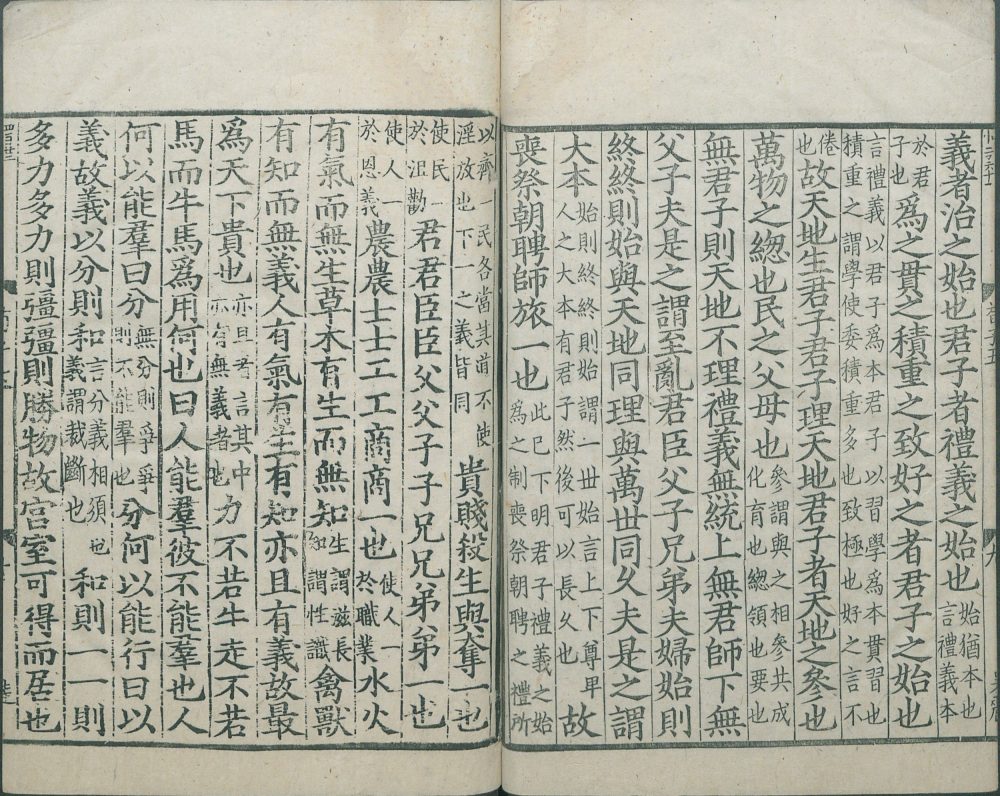 義者治之始也君子者禮義之始也始猶本也言禮義本
於君子也爲之貫之積重之致好之者君子之始也
言禮義以君子爲本君子以習學爲本貫習也積重之謂學使委積重多也致極也好之言不
倦也故天地生君子君子理天地君子者天地之參也
萬物之緫也民之父母也參謂與之相參共成化育也緫領也要也
無君子則天地不理禮義無統上無君師下無
父子夫是之謂至亂君臣父子兄弟夫婦始則
終終則始與天地同理與萬世同久夫是之謂
大本始則終終則始謂一世始言上下尊卑人之大本有君子然後可以長久也故
喪祭朝聘師旅一也此已下明君子禮義之始爲之制喪祭朝聘之禮所
以齊一民各當其道不使淫放也下一之義皆同貴賤殺生與奪一也
使民一於沮勸君君臣臣父父子子兄兄弟弟一也
使人一於恩義農農士士工工商商一也使人一於職業水火
有氣而無生草木有生而無知生謂滋長知謂性識禽獸
有知而無義人有氣有生有知亦且有義故最
爲天下貴也亦且者言其中亦有無義者也力不若牛走不若
馬而牛馬爲用何也曰人能羣彼不能羣也人
何以能羣曰分無分則爭爭則不能羣也分何以能行曰以
義故義以分則和言分義相須也義謂裁斷也和則一一則
多力多力則彊彊則勝物故宫室可得而居也